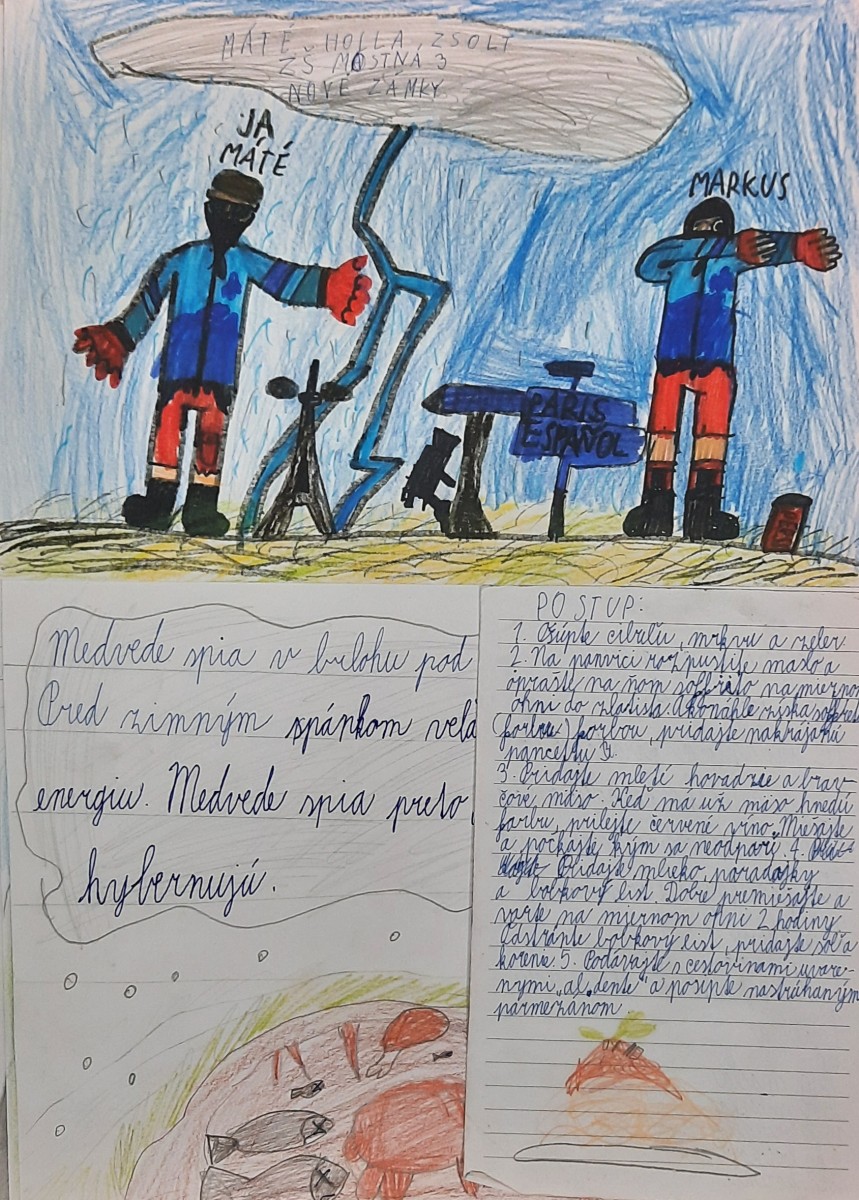 MÁTÉ HOLLA ZSOLT
ZŠ MOSTNÁ 3
NOVÉ ZÁMKY
JA
MÁTÉ
MARKUS
PARIS
ESPAŇOL
Medvede spia v brlohu pod
Pred zimným spánkom
energiu. Medvede spia preto,
hybernujú.
POSTUP:
1. Ošúpte cibuľu, mrkvu a zeler.
2. Na panvici rozpustite maslo a
opražte na ňom soffrito na miernom
ohni do zlatista. Akonáhle získa
farbou, pridajte nakrájanú
pancettu
3. Pridajte mleté hovadzie a brav-
čové mäso. Keď má už mäso hnedú
farbu, prilejte červené víno. Miešajte
a počkajte, kým sa neodparí. 4.
Pridajte mlieko, paradajky
a bobkový list. Dobre premiešajte a
varte na miernom ohni 2 hodiny.
Odstráňte bobkový list, pridajte soľ a
korenie. 5. Podávajte s cestovinami uvare-
nými „al dente" a posypte nastrúhaným
parmezánom.